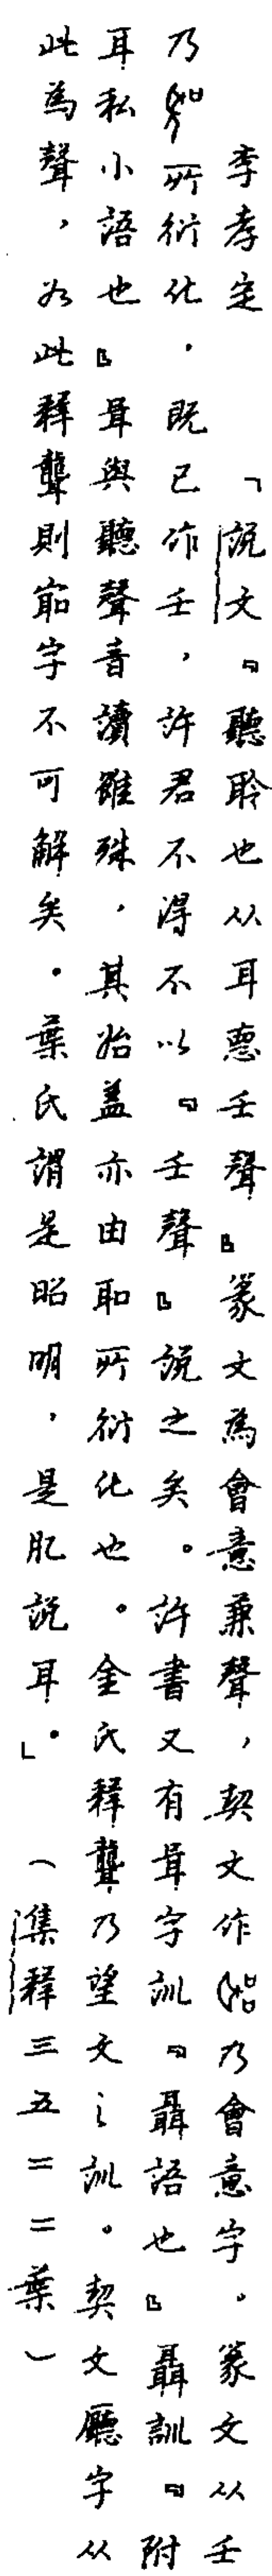 李孝定　「說文『聽聆也从耳悳壬聲』篆文為會意兼聲，契文作乃會意字。篆文从壬
乃所衍化，既已作壬，許君不得不以『壬聲』說之矣。許書又有咠字訓『聶語也』聶訓『附
耳私小語也』咠與聽聲音讀雖殊，其始蓋亦由耶所衍化也。金氏釋聾乃望文之訓。契文廳字从
此為聲，如此釋聾則字不可解矣。葉氏謂是昭明，是肊說耳。」（集釋三五二二葉）